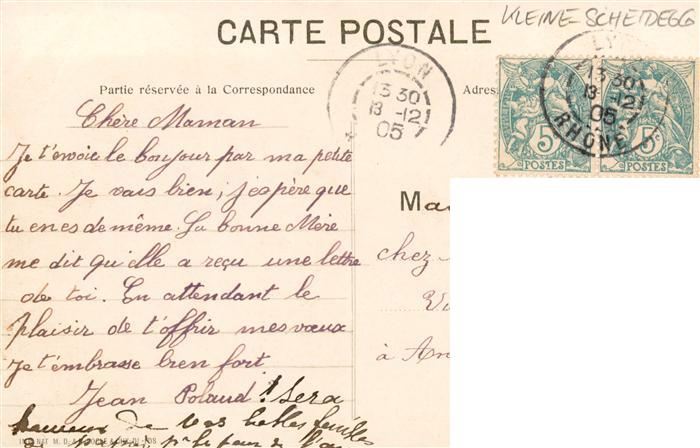 KLEINE-SCHEIDEGG
CARTE POSTALE
Partie réservée à la Correspondance
Adres
LYON
13 30
13 -12
05
LY
13 30
13 -12
05
RHÔNE
5c
POSTES
5c
POSTES
Chère Maman
Je t'envoie le bonjour par ma petite
carte. Je vais bien; j'espère que
tu en es de même. La bonne Mère
me dit qu'elle a reçu une lettre
de toi. En attendant le
plaisir de t'offrir mes vœux
Je t'embrasse bien fort
Jean Poland! Sera
heureux de vos belles familles
Ma
chez
Vi
à An